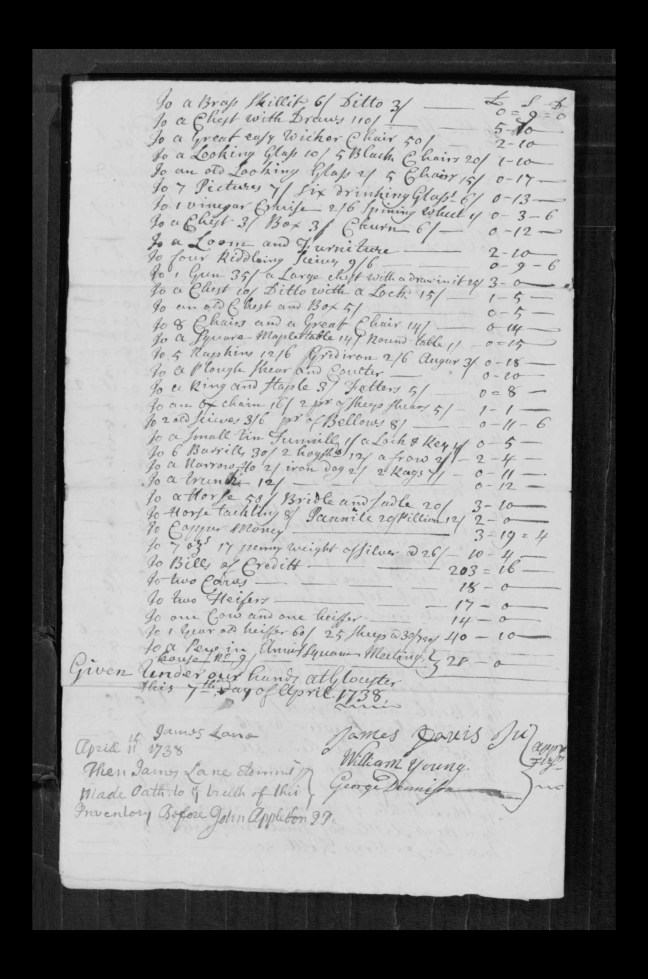 £ S D
To a Brass Skillit 6/ Ditto 3/ — 0 = 9 = 0
To a Chest with Draws 110/ — 5-10 —
To a Great easy Wicker Chair 50/ — 2-10 —
To a Looking Glass 10/ 5 Black Chairs 20/ 1-10 —
To an old Looking Glass 2/ 5 Chairs 15/ 0-17 —
To 7 Pictures 7/ Six drinking Glass.s 6/ 0-13 —
To 1 vinegar Cruise 2/6 Spining wheel 1/ 0-3-6
To a Chest 3/ Box 3/ Churn 6/ — 0-12 —
To a Loom and Furniture — 2-10 —
To four Riddling Seives 9/6 — 0-9-6
To 1 Gun 35/ a Large chest with a draw in it 25/ 3-0 —
To a Chest 10/ Ditto with a Lock 15/ 1-5 —
To an old Chest and Box 5/ — 0-5 —
To 8 Chairs and a Great Chair 14/ — 0-14 —
To a Square Maple table 14/ Round table 1/ — 0=15 —
To 5 Napkins 12/6 Gridiron 2/6 Augur 3/ 0-18 —
To a Plough Shear and Coulter — 0-10 —
To a Ring and Staple 3/ Fetters 5/ — 0=8 —
To an Ox chain 16/ 2 pr of Sheep Shears 5/ 1-1 —
To 2 old Seives 3/6 pr of Bellows 8/ — 0-11-6
To a Small Tin Tunnill 1/ a Lock & Key 4/ 0-5 —
To 6 Barrills 30/ 2 hogshds 12/ a frow 2/ — 2-4 —
To a Narrow Ho 2/ iron dog 2/ 2 Kags 7/ — 0-11 —
To a Trunk 12/ — 0-12 —
To a Horse 50/ Bridle and Sadle 20/ 3-10 —
To Horse tackling 8/ Pannile 20/ Pillion 12/ 2-0 —
To Copper Money — 3-19=4
To 7 ozs 17 penny weight of Silver @ 26/ — 10-4 —
To Bills of Creditt — 203=16 —
To two Cows — 18-0 —
To two Heifers — 17-0 —
To one Cow and one heiffer — 14-0 —
To 1 year old heiffer 60/ 25 Sheep @ 30/ 40-10 —
To a Pew in Annis Squam Meeting
house No 9/ } 28-0 —
Given under our hands at Glouster
this 7th Day of April 1738
James Lane
James Davis Jur
William Young
George Dennison
April 11th 1738
Then James Lane Adminis
made Oath to ye truth of this
Inventory Before John Appleton